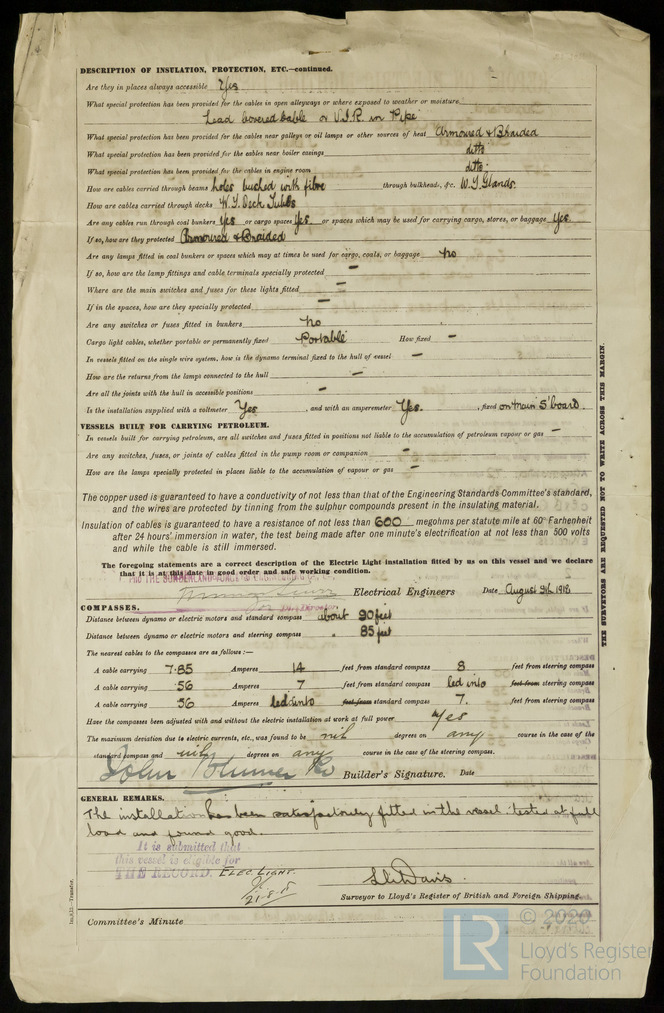 DESCRIPTION OF INSULATION, PROTECTION, ETC.—continued.
Are they in places always accessible Yes
What special protection has been provided for the cables in open alleyways or where exposed to weather or moisture
Lead covered cable or V.I.R. in Pipe
What special protection has been provided for the cables near galleys or oil lamps or other sources of heat Armoured & Braided
What special protection has been provided for the cables near boiler casings ditto
What special protection has been provided for the cables in engine room ditto
How are cables carried through beams holes bushed with fibre through bulkheads, &c. W.T. Glands.
How are cables carried through decks W.T. Deck Tubes
Are any cables run through coal bunkers Yes or cargo spaces Yes or spaces which may be used for carrying cargo, stores, or baggage Yes
If so, how are they protected Armoured & Braided
Are any lamps fitted in coal bunkers or spaces which may at times be used for cargo, coals, or baggage No
If so, how are the lamp fittings and cable terminals specially protected —
Where are the main switches and fuses for these lights fitted —
If in the spaces, how are they specially protected —
Are any switches or fuses fitted in bunkers No
Cargo light cables, whether portable or permanently fixed Portable How fixed —
In vessels fitted on the single wire system, how is the dynamo terminal fixed to the hull of vessel —
How are the returns from the lamps connected to the hull —
Are all the joints with the hull in accessible positions —
Is the installation supplied with a voltmeter Yes , and with an amperemeter Yes. , fixed on Main S'board.
VESSELS BUILT FOR CARRYING PETROLEUM.
In vessels built for carrying petroleum, are all switches and fuses fitted in positions not liable to the accumulation of petroleum vapour or gas —
Are any switches, fuses, or joints of cables fitted in the pump room or companion —
How are the lamps specially protected in places liable to the accumulation of vapour or gas —
The copper used is guaranteed to have a conductivity of not less than that of the Engineering Standards Committee's standard,
and the wires are protected by tinning from the sulphur compounds present in the insulating material.
Insulation of cables is guaranteed to have a resistance of not less than 600 megohms per statute mile at 60° Farhenheit
after 24 hours' immersion in water, the test being made after one minute's electrification at not less than 500 volts
and while the cable is still immersed.
The foregoing statements are a correct description of the Electric Light installation fitted by us on this vessel and we declare
that it is at this date in good order and safe working condition.
THE SUNDERLAND FORGE & ENGINEERING
Electrical Engineers Date August 9th 1918
COMPASSES.
Distance between dynamo or electric motors and standard compass about 90 feet
Distance between dynamo or electric motors and steering compass " 85 feet
The nearest cables to the compasses are as follows:—
A cable carrying 7.85 Amperes 14 feet from standard compass 8 feet from steering compass
A cable carrying .56 Amperes 7 feet from standard compass led into feet from steering compass
A cable carrying .56 Amperes led into feet from standard compass 7. feet from steering compass
Have the compasses been adjusted with and without the electric installation at work at full power Yes
The maximum deviation due to electric currents, etc., was found to be nil degrees on any course in the case of the
standard compass and nil degrees on any course in the case of the steering compass.
John Blumer & Co Builder's Signature. Date
GENERAL REMARKS.
The installation has been satisfactorily fitted in the vessel tested at full
load and found good.
It is submitted that
this vessel is eligible for
THE RECORD. ELEC. LIGHT.
21-8-18
Davis.
Surveyor to Lloyd's Register of British and Foreign Shipping.
Committee's Minute
THE SURVEYORS ARE REQUESTED NOT TO WRITE ACROSS THIS MARGIN.
© 2020
LR
Lloyd's Register
Foundation